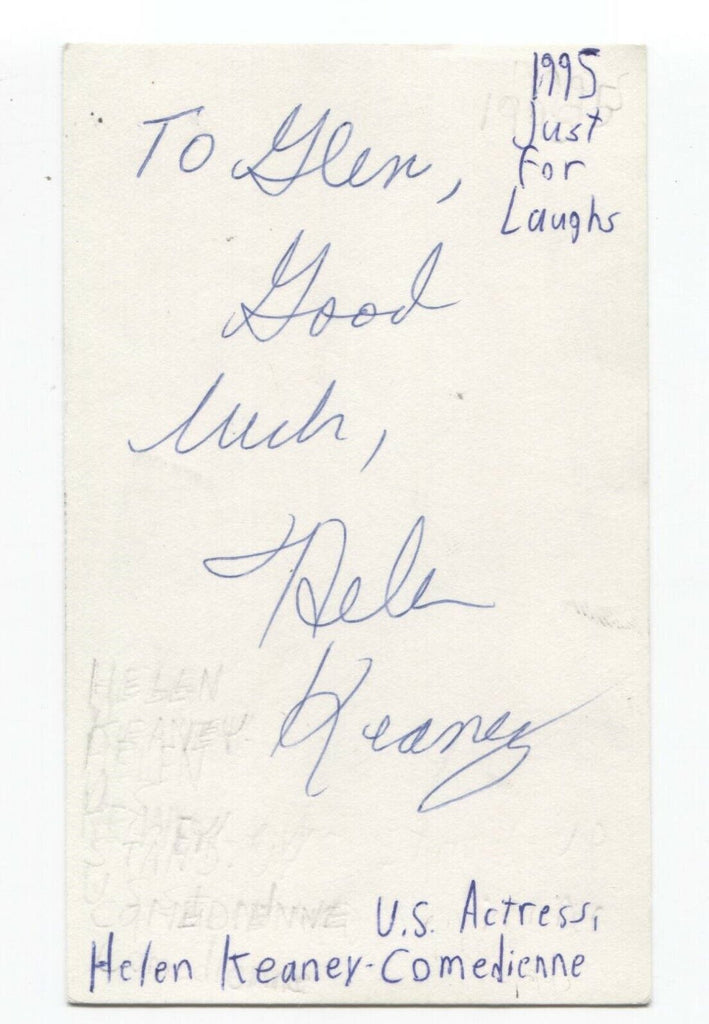 1995
Just
For
Laughs
To Glen,
Good
luck,
Helen
Keaney
HELEN
KEANEY
COMEDIENNE
U.S. Actress,
Helen Keaney-Comedienne